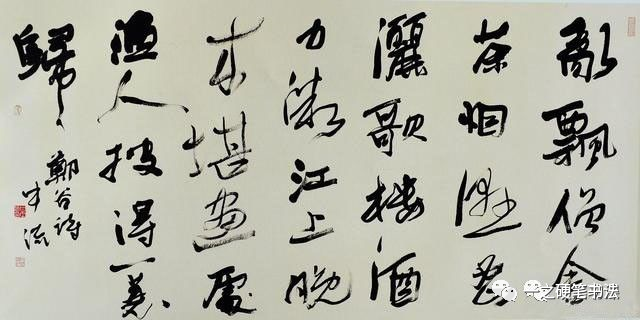 亂飄僧舍
茶烟濕密
灑歌樓酒
力微江上晚
來堪畫處
漁人披得一蓑
歸
鄭谷詩
之硬笔书法